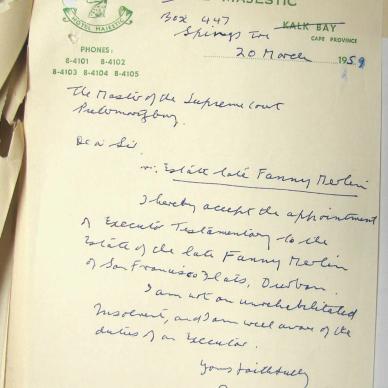 MAJESTIC
HOTEL MAJESTIC
Box 447
KALK BAY
Springs Tvl
CAPE PROVINCE
20 March 1959
PHONES:
8-4101 8-4102
8-4103 8-4104 8-4105
The Master of the Supreme Court
Pietermaritzburg.
Dear Sir.
re: Estate late Fanny Merlin
I hereby accept the appointment
of Executor Testamentary to the
Estate of the late Fanny Merlin
of San Francisco Flats, Durban.
I am not an unrehabilitated
Insolvent, and I am well aware of the
duties of an Executor.
Yours faithfully